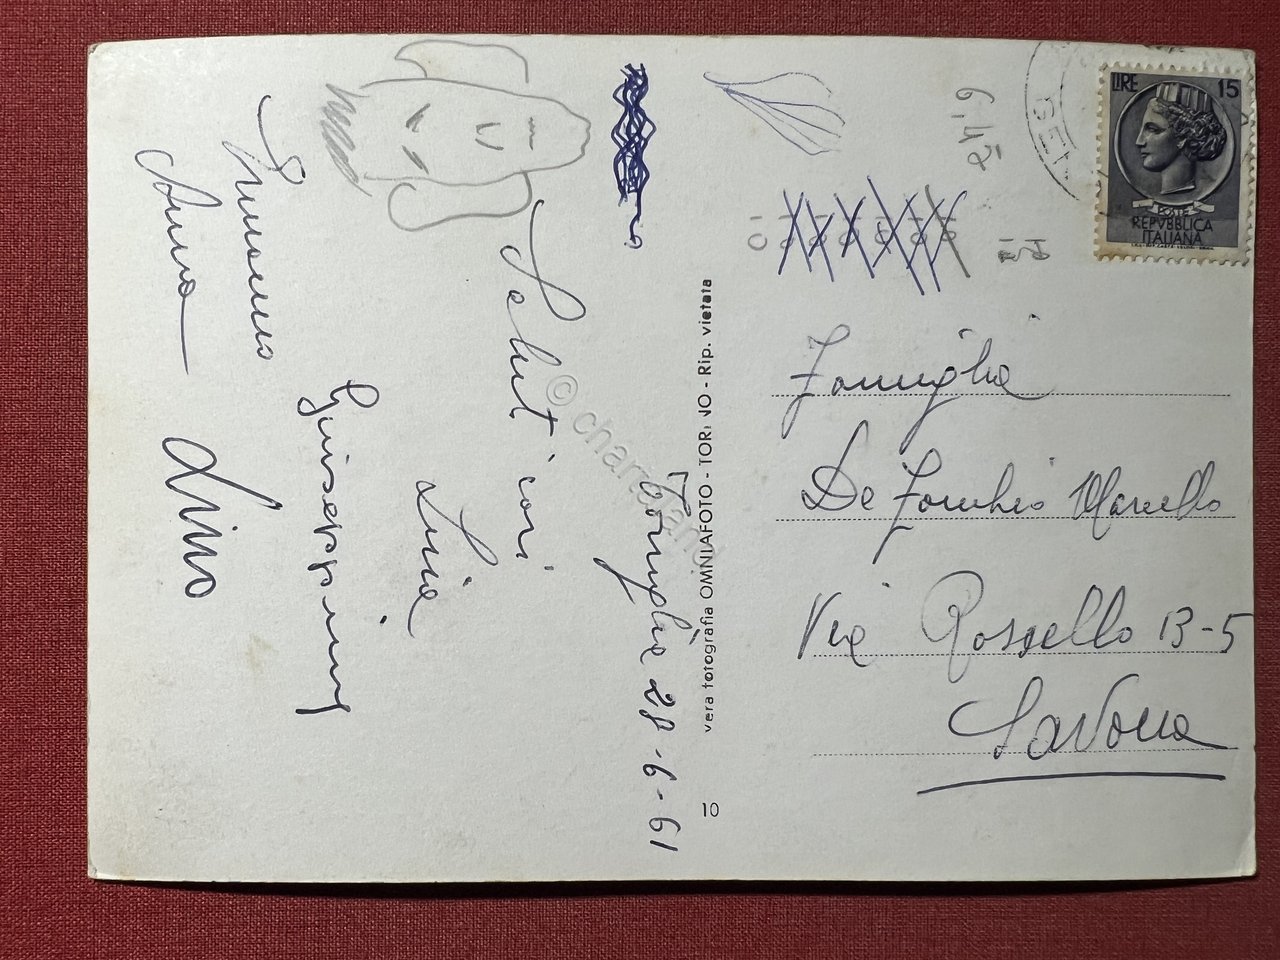 Torriglia 28-6-61
Saluti cari
Livia
Giuseppina
Anna
Lino
vera fotografia OMNIAFOTO - TORINO - Rip. vietata
10
© cartoland
LIRE 15
POSTE
REPVBBLICA
ITALIANA
Famiglia
De Marcello
Via Rossello 13-5
Savona